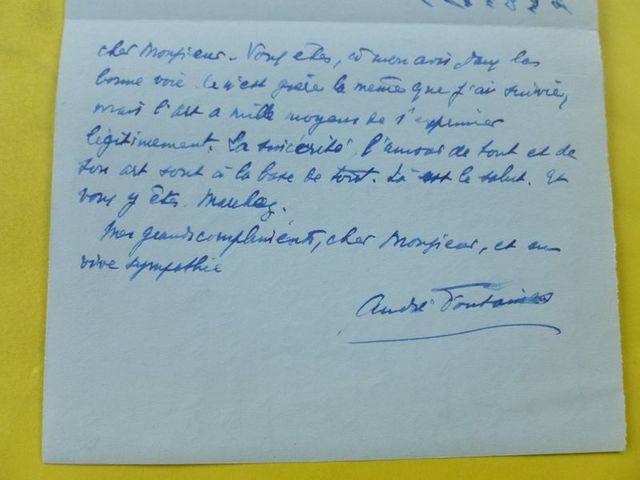 cher Monsieur. Vous êtes, à mon avis, dans la
bonne voie. Ce n'est guère la même que j'ai suivie,
mais l'art a mille moyens de s'exprimer
légitimement. La sincérité, l'amour de tout et de
son art sont à la base de tout. Là est le salut. Et
vous y êtes. Marchez.
Mes grands compliments, cher Monsieur, et en
vive sympathie
André Fontainas